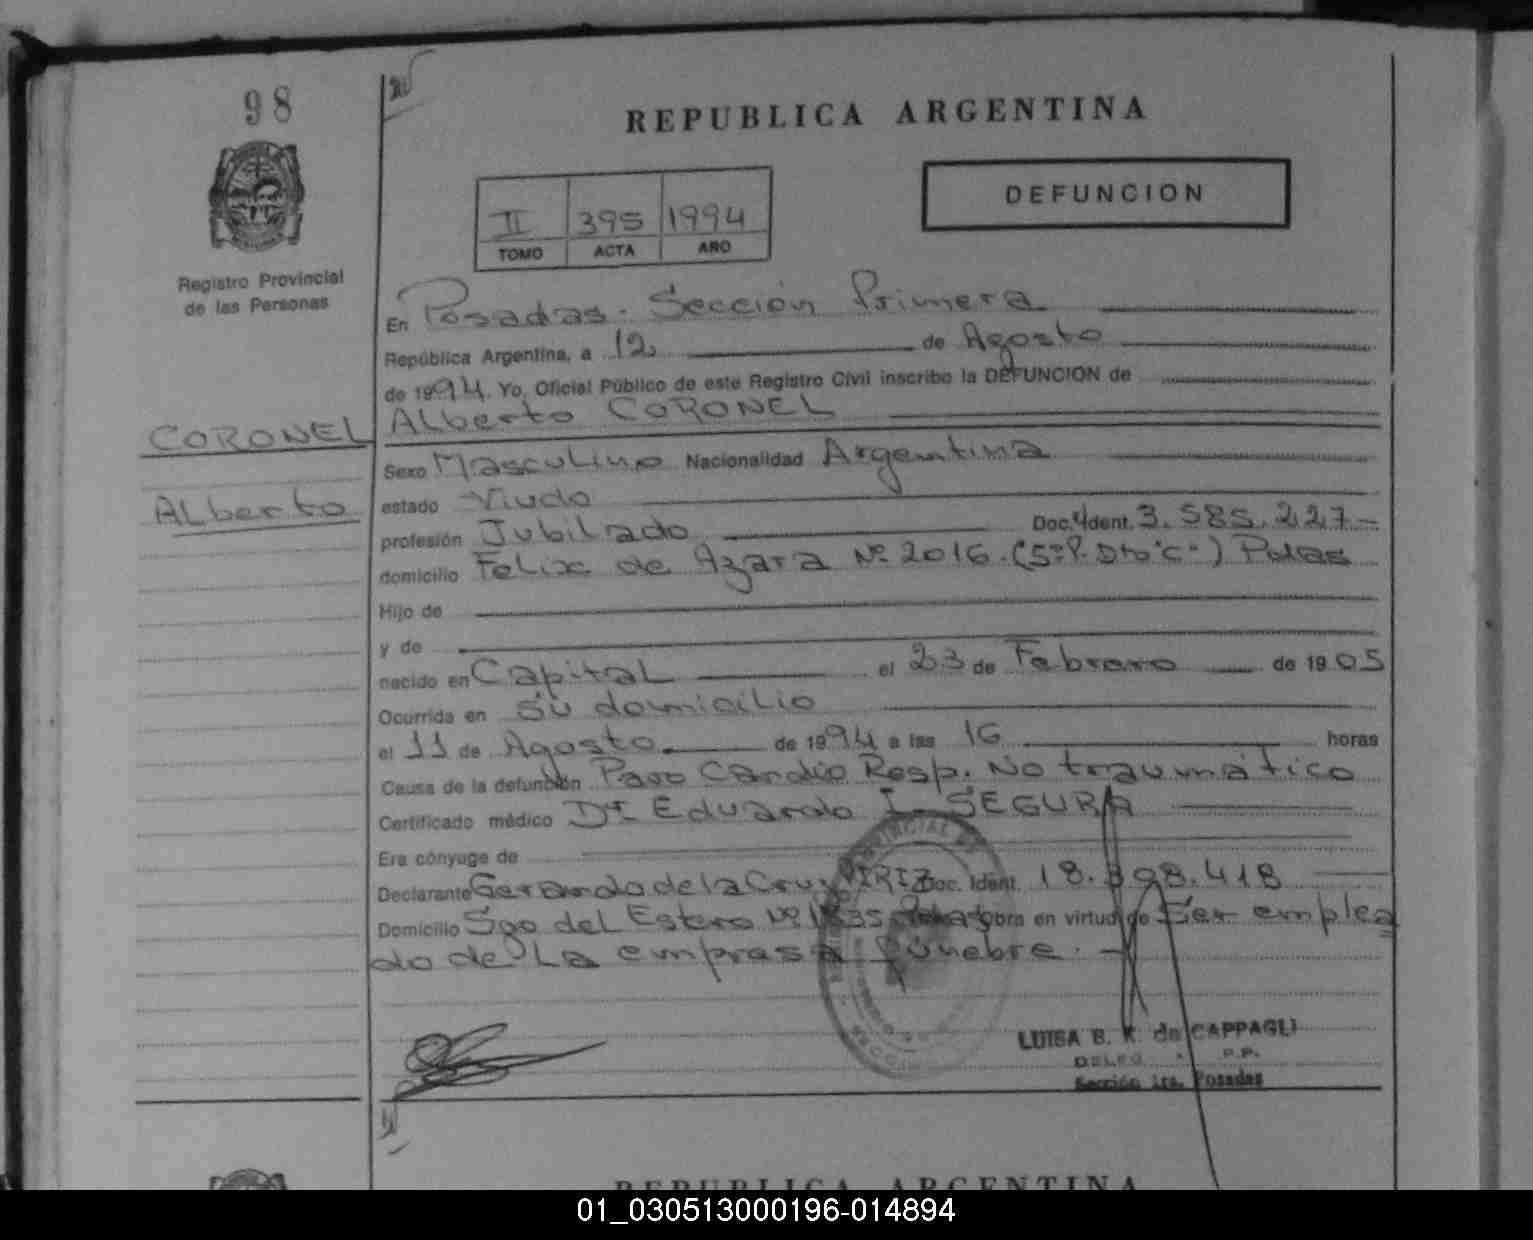 98
REPUBLICA ARGENTINA
DEFUNCION
II 395 1994
TOMO ACTA AÑO
Registro Provincial
de las Personas
En Posadas. Sección Primera
República Argentina, a 12 de Agosto
de 1994. Yo, Oficial Público de este Registro Civil inscribo la DEFUNCION de
Alberto CORONEL
CORONEL
Alberto
Sexo Masculino Nacionalidad Argentina
estado Viudo
profesión Jubilado Doc. Ident. 3.585.227-
domicilio Felix de Azara Nº 2016. (5º P. Dto "C") Pdas
Hijo de
y de
nacido en Capital el 23 de Febrero de 1905
Ocurrida en su domicilio
el 11 de Agosto de 1994 a las 16 horas
Causa de la defunción Paro Cardio Resp. No traumático
Certificado médico Dr Eduardo I. SEGURA
Era cónyuge de
Declarante Gerardo de la Cruz Doc. Ident. 18.398.418
Domicilio Sgo del Estero Nº obra en virtud de Ser emplea
do de La empresa fúnebre.
LUISA B. K. de CAPPAGLI
DELEG R.P.P.
Sección 1ra. Posadas
REPUBLICA ARGENTINA
01_030513000196-014894